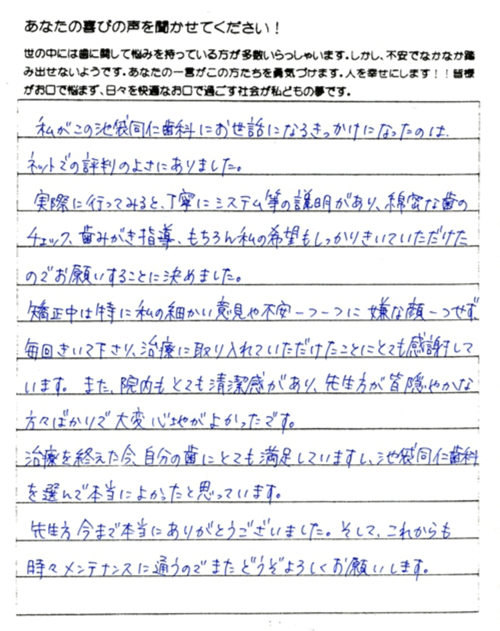 あなたの喜びの声を聞かせてください！
世の中には歯に関して悩みを持っている方が多数いらっしゃいます。しかし、不安でなかなか踏
み出せないようです。あなたの一言がこの方たちを勇気づけます。人を幸せにします！！皆様
がお口で悩まず、日々を快適なお口で過ごす社会が私どもの夢です。
私がこの池袋同仁歯科にお世話になるきっかけになったのは、
ネットでの評判のよさにありました。
実際に行ってみると、丁寧にシステム等の説明があり、綿密な歯の
チェック、歯みがき指導、もちろん私の希望もしっかりきいていただけた
のでお願いすることに決めました。
矯正中は特に私の細かい意見や不安一つ一つに嫌な顔一つせず
毎回きいて下さり、治療に取り入れていただけたことにとても感謝して
います。また、院内もとても清潔感があり、先生方が皆穏やかな
方々ばかりで大変心地がよかったです。
治療を終えた今、自分の歯にとても満足していますし、池袋同仁歯科
を選んで本当によかったと思っています。
先生方今まで本当にありがとうございました。そして、これからも
時々メンテナンスに通うのでまたどうぞよろしくお願いします。